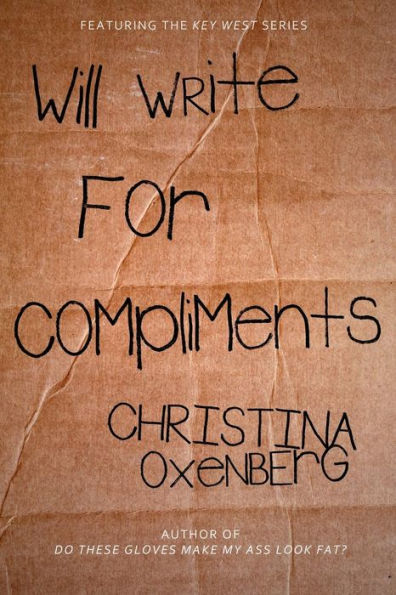 FEATURING THE KEY WEST SERIES
Will Write
For
Compliments
CHRISTINA
OXENBERG
AUTHOR OF
DO THESE GLOVES MAKE MY ASS LOOK FAT?